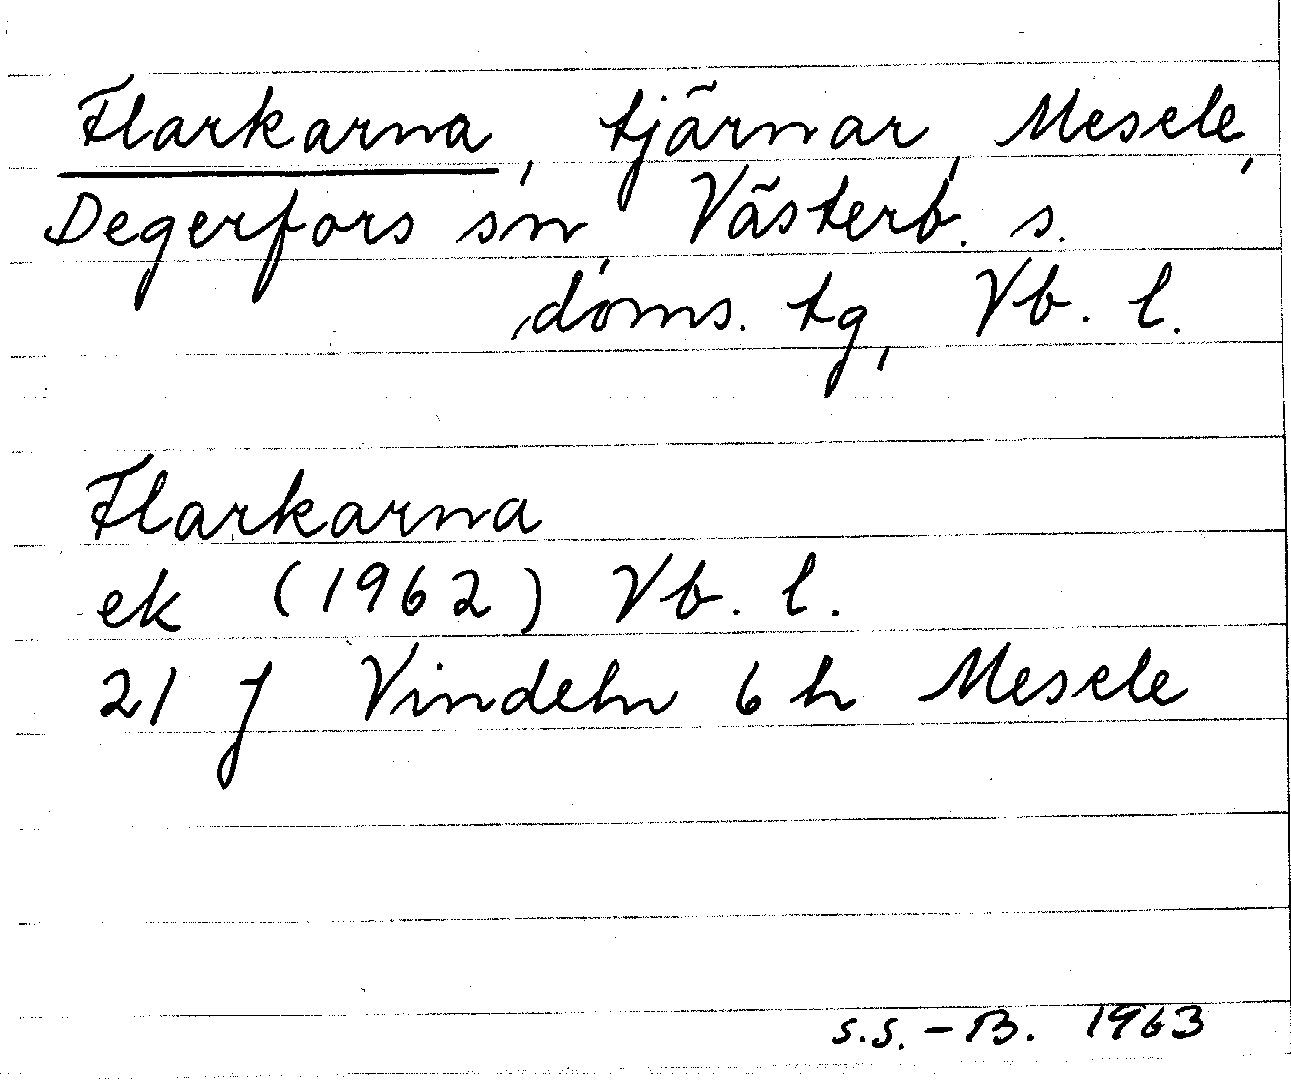 Flarkarna, tjärnar, Mesele,
Degerfors sn, Västerb. s.
doms. tg, Vb. l.
Flarkarna
ek (1962) Vb. l.
21 J Vindeln 6 h Mesele
S.S.-B. 1963